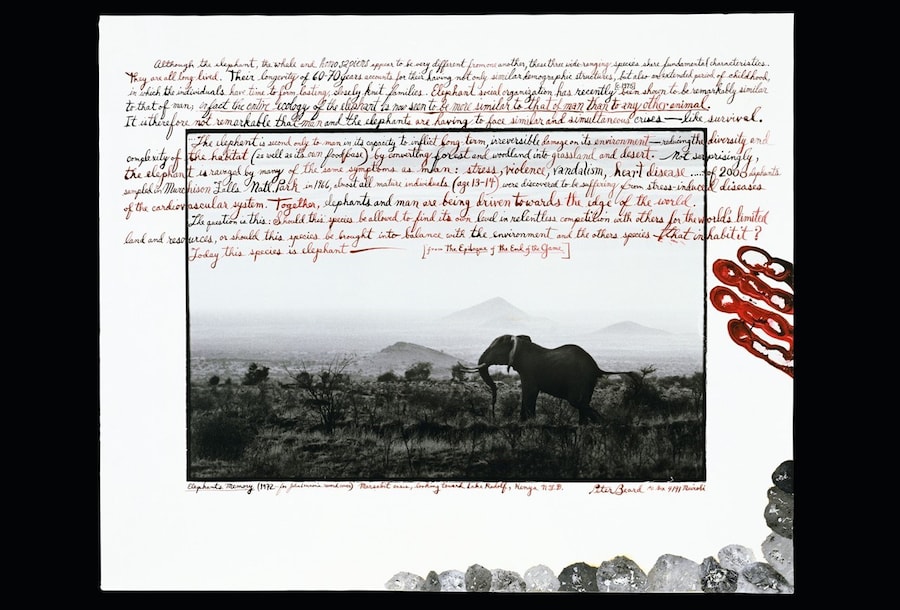 Although the elephant, the whale and homo sapiens appear to be very different from one another, these three wide-ranging species share fundamental characteristics.
They are all long-lived. Their longevity of 60-70 years accounts for their having not only similar demographic structures, but also an extended period of childhood,
in which the individuals have time to form lasting, closely knit families. Elephant social organization has recently been shown to be remarkably similar
to that of man; in fact the entire ecology of the elephant is now seen to be more similar to that of man than to any other animal.
It is therefore not remarkable that man and the elephants are having to face similar and simultaneous crises — like survival.
...The elephant is second only to man in its capacity to inflict long-term, irreversible damage on its environment — reducing the diversity and
complexity of the habitat (as well as its own foodbase) by converting forest and woodland into grassland and desert. Not surprisingly,
the elephant is ravaged by many of the same symptoms as man: stress, violence, vandalism, heart disease .... of 2000 elephants
sampled in Murchison Falls Natl. Park in 1966, almost all mature individuals (age 13-14) were discovered to be suffering from stress-induced diseases
of the cardiovascular system. Together, elephants and man are being driven towards the edge of the world.
The question is this: Should this species be allowed to find its own level in relentless competition with others for the world's limited
land and resources, or should this species be brought into balance with the environment and the others species that inhabit it?
Today this species is elephant — [from The Epilogue of The End of the Game]
Elephants Memory (1972 Marsabit looking toward Lake Rudolf, Kenya N.F.D. Peter Beard Nairobi